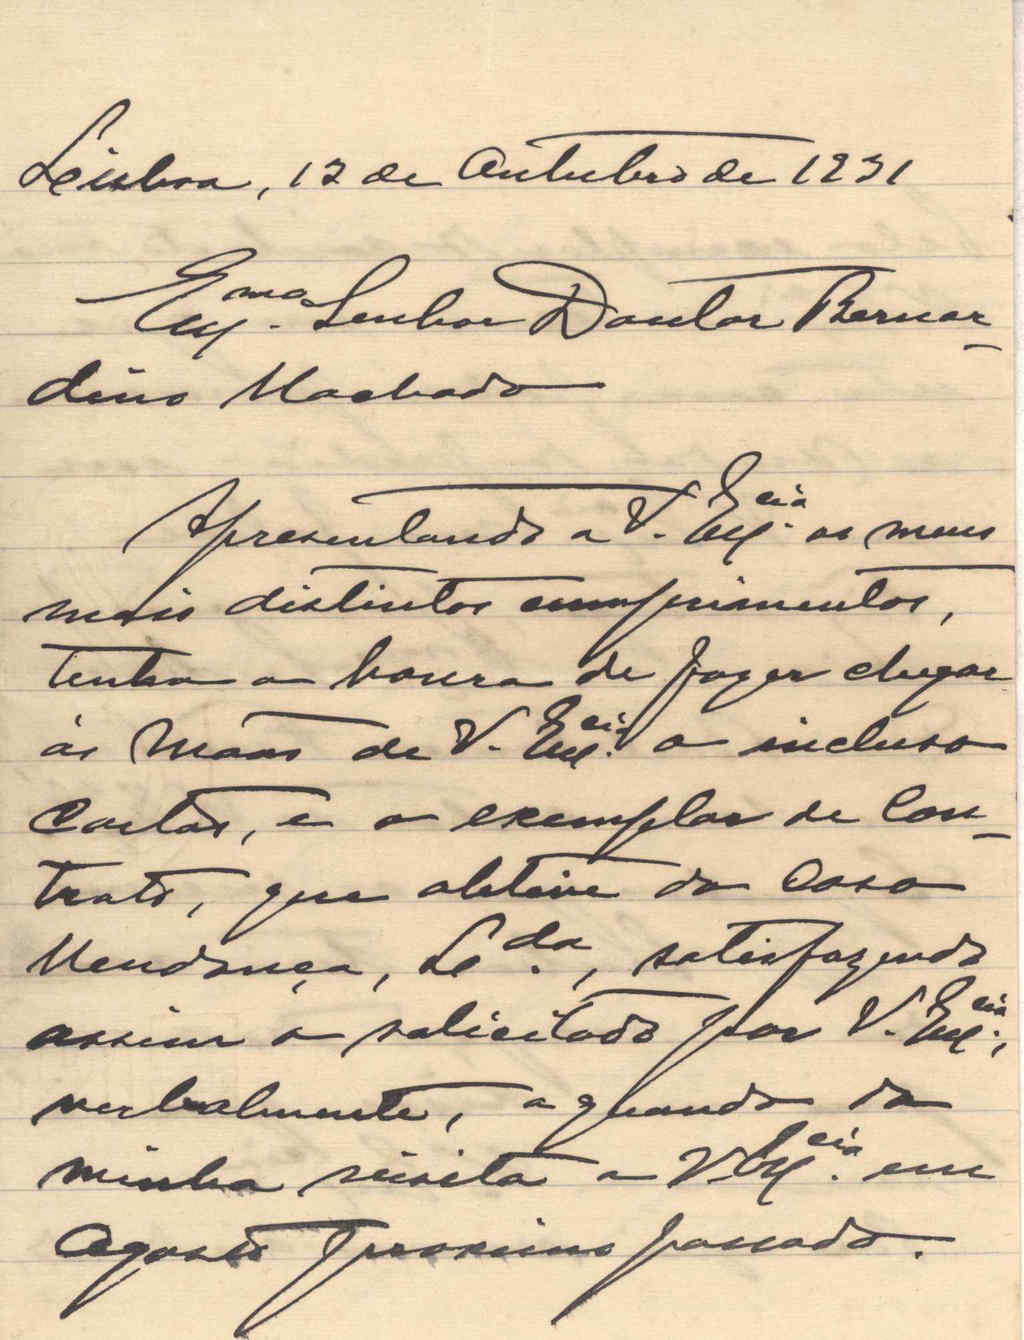 Lisboa, 12 de Outubro de 1931
Ex.mo Senhor Doutor Bernar-
dino Machado
Apresentando a V. Ex.cia os meus
mais distintos cumprimentos,
tenho a honra de fazer chegar
ás mãos de V. Ex.cia a inclusa
carta, e o exemplar de Con-
trato, que obtive da Casa
Mendonça, L.da, satisfazendo
assim o solicitado por V. Ex.cia,
verbalmente, aquando da
minha visita a V. Ex.cia em
Agosto proximo passado.